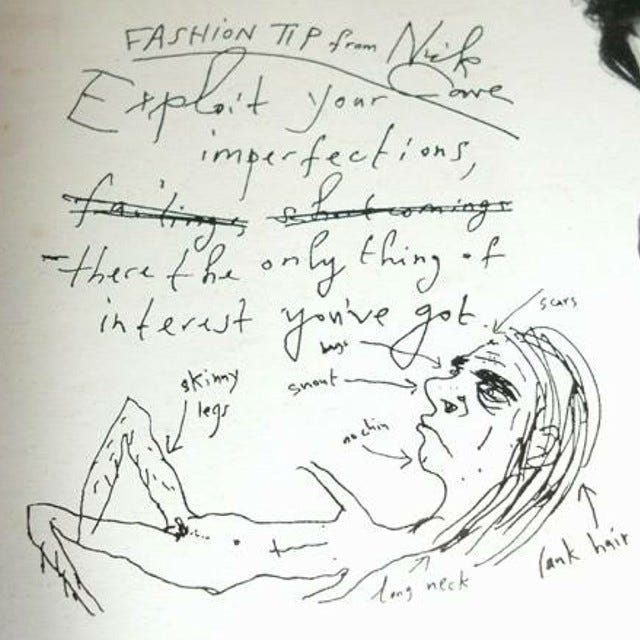 FASHION TIP from Nick
Cave
Exploit your
imperfections,
failings, shortcomings
there the only thing of
interest you've got.
scars
bags
skinny
legs
snout
no chin
lank hair
long neck